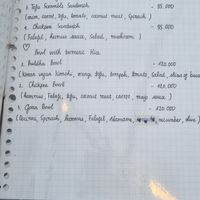 3. Tofu Scramble Sandwich - 95.000
(onion, carrot, tofu, tomato, coconut meat, Spinach)
4. Chickpea Sandwich - 95.000
(Falafel, hummus sauce, Salad, mushroom)
Bowl with turmeric Rice
1. Buddha Bowl - 120.000
(Korean vegan Kimchi, orange tofu, tempeh, tomato, Salad, slice of
2. Chickpea Bowl - 120.000
(hummus, Falafel, tofu, coconut meat, carrot, mayo sauce)
3. Green Bowl - 120.000
(Quinoa, Spinach, hummus, Falafel, edamame, cucumber, olive)